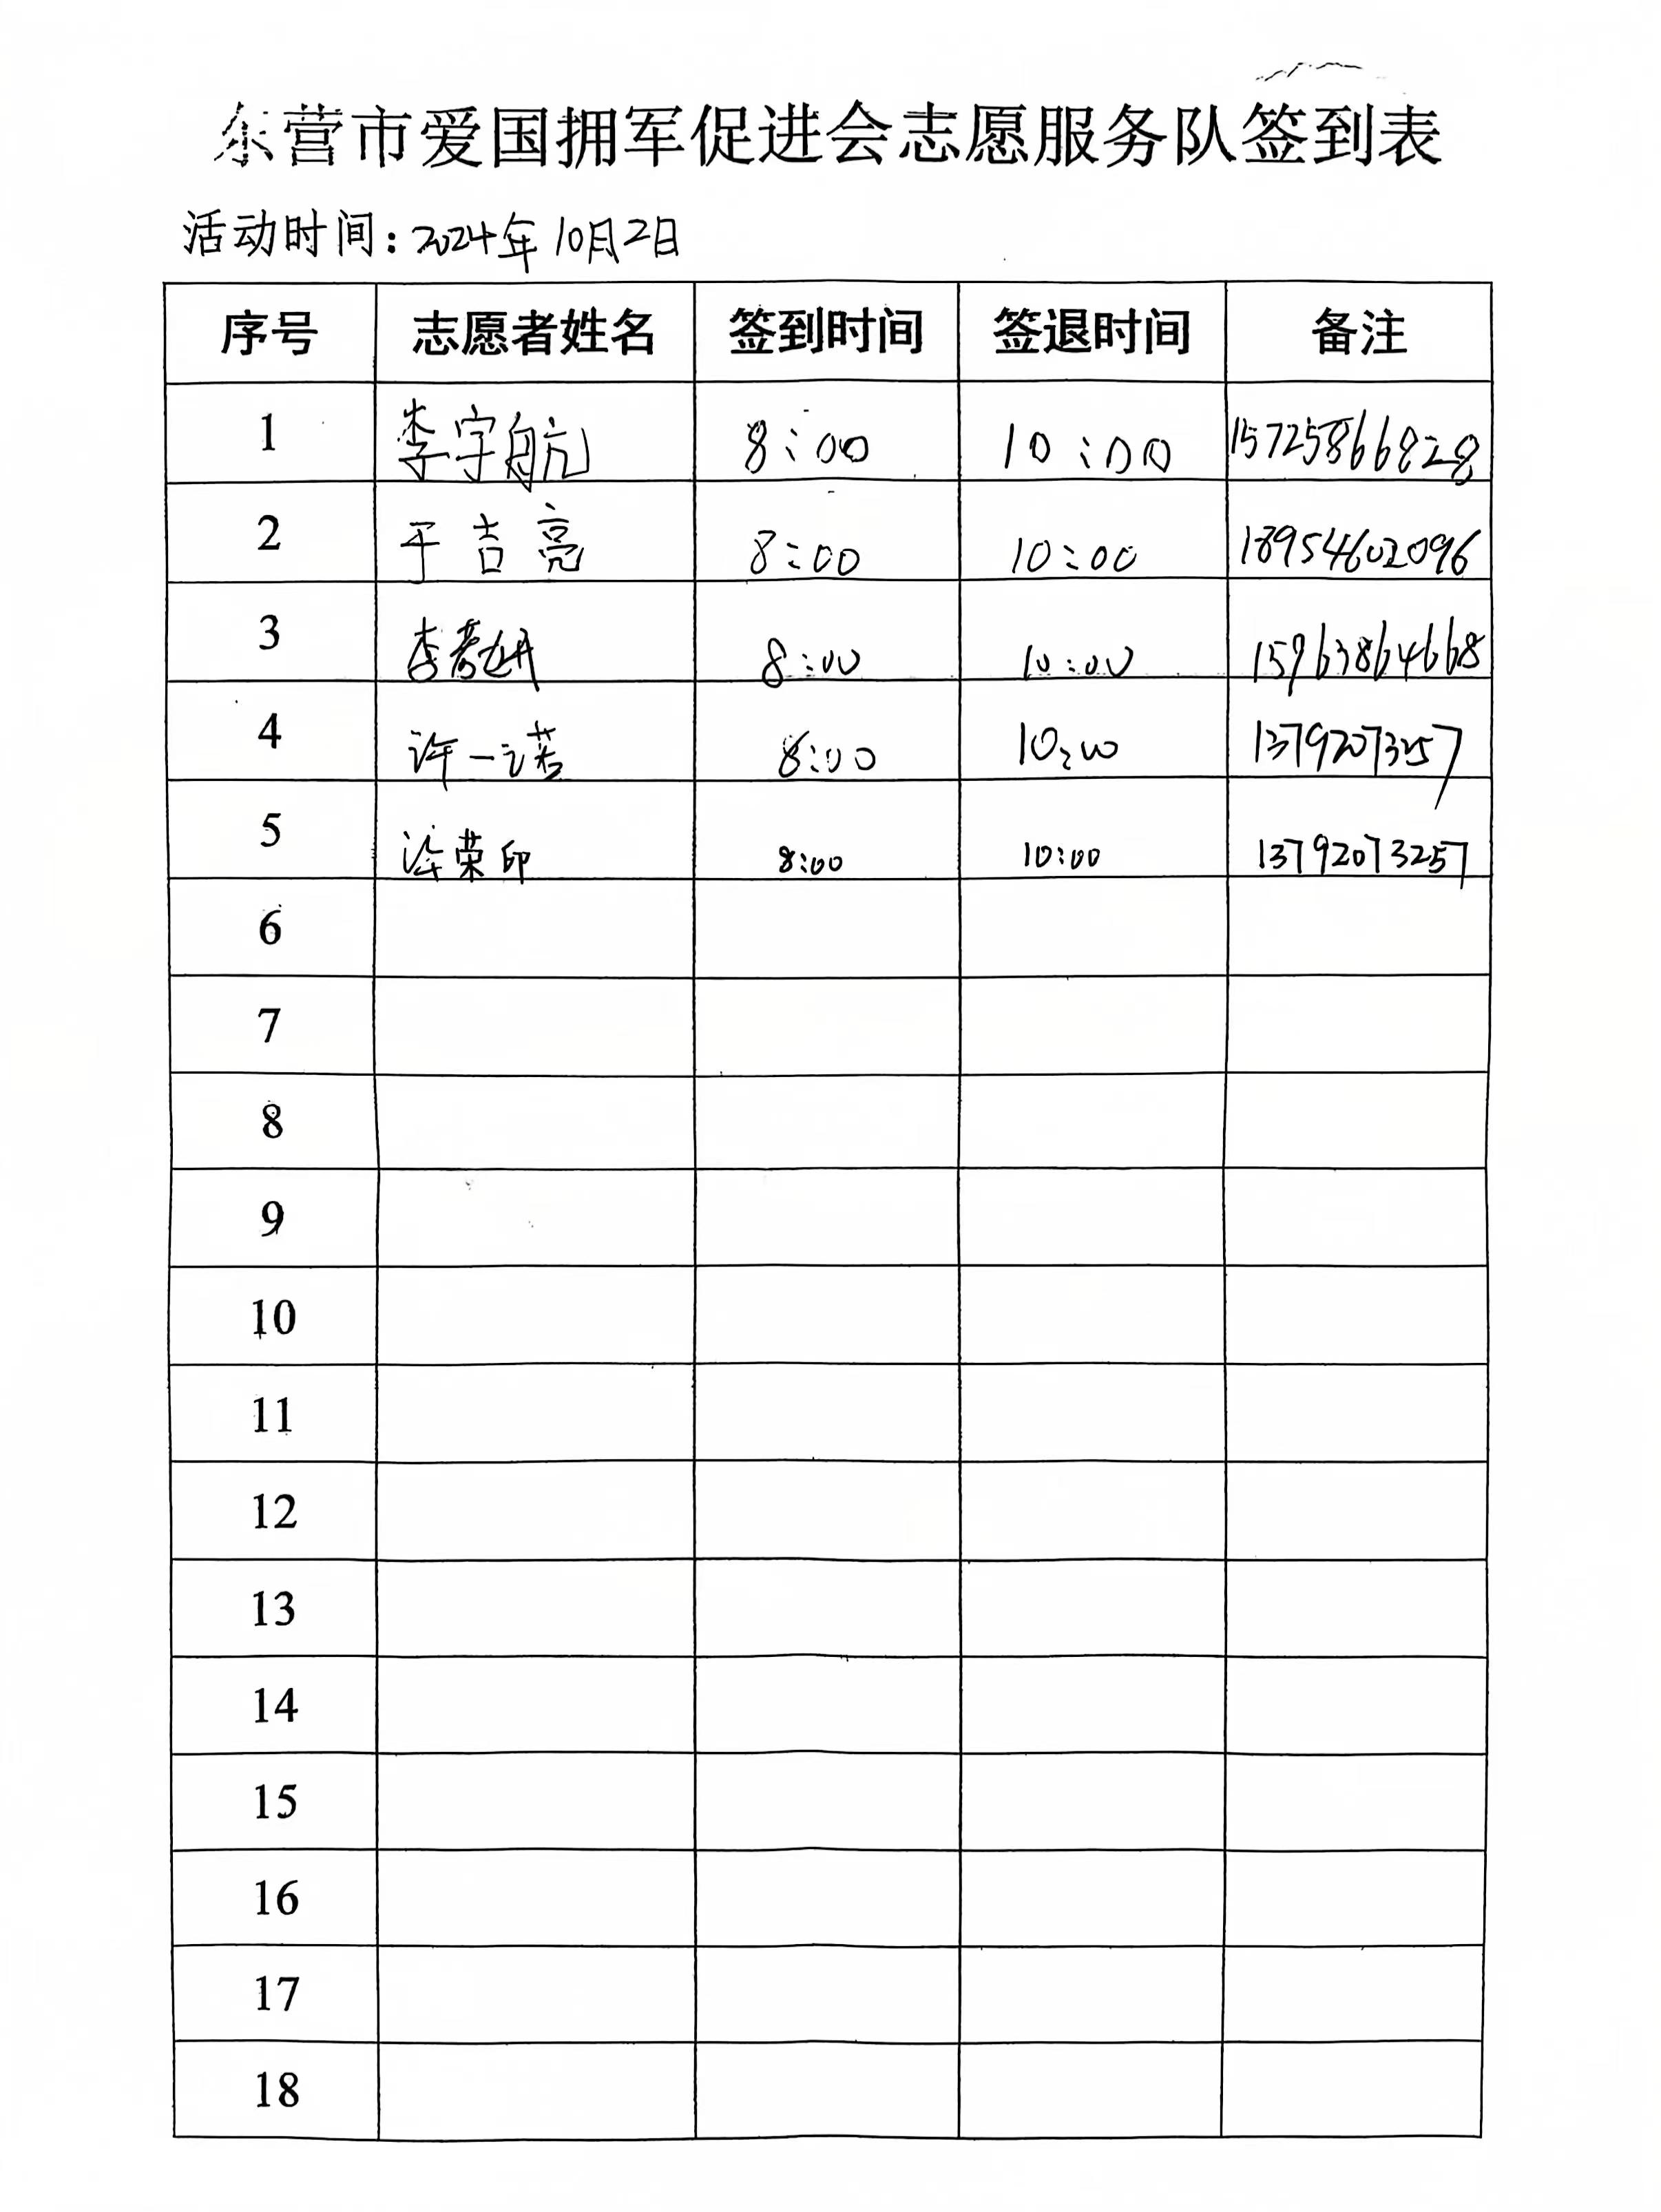 东营市爱国拥军促进会志愿服务队签到表
活动时间：2024年10月2日
序号 志愿者姓名 签到时间 签退时间 备注
1 李宇航 8:00 10:00 15725866828
2 于吉亮 8:00 10:00 18954602096
3 李彦 8:00 10:00 15963864668
4 许一诺 8:00 10:00 13792073257
5 荣印 8:00 10:00 13792073257
6
7
8
9
10
11
12
13
14
15
16
17
18